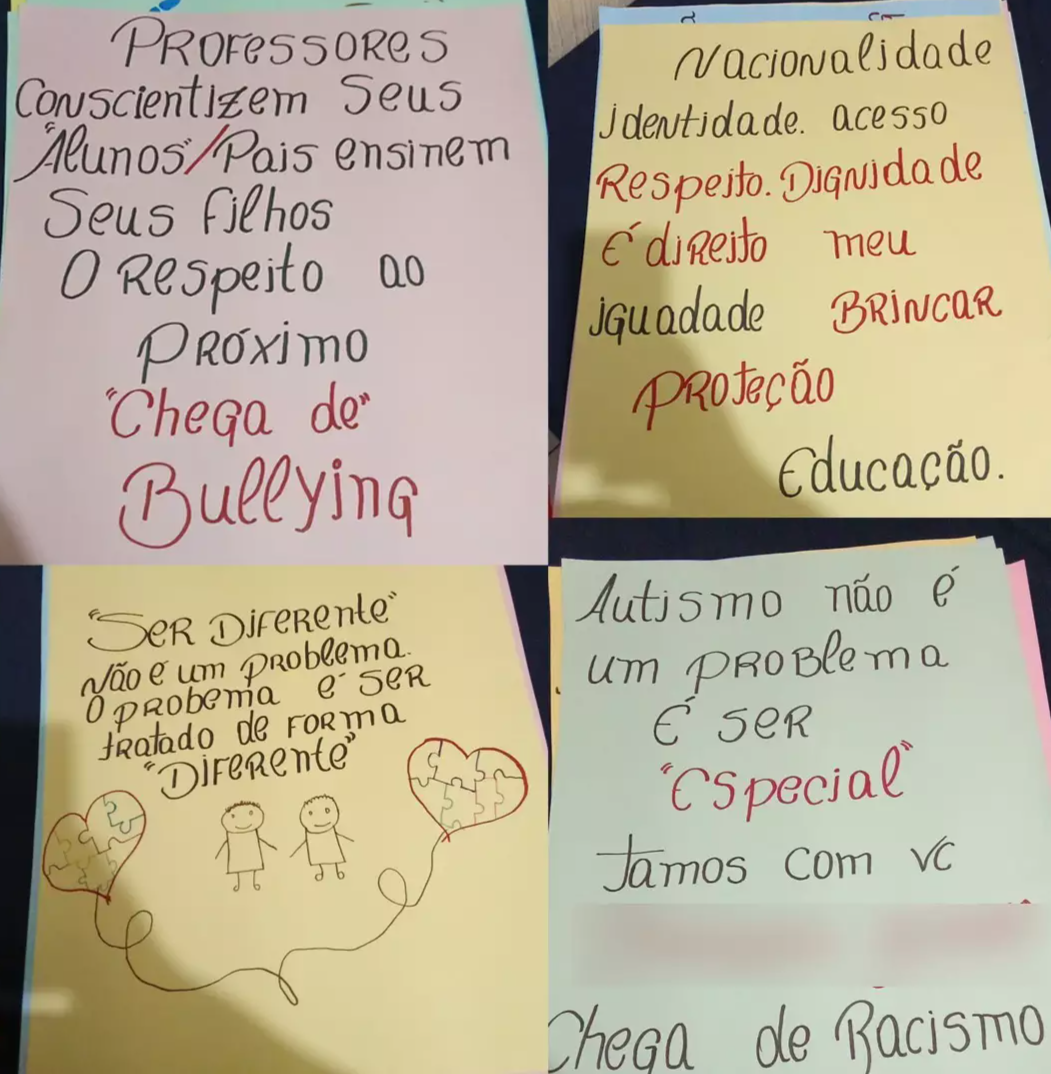 PROFESSORES
Conscientizem Seus
"Alunos"/Pais ensinem
Seus filhos
O Respeito ao
PRÓXIMO
"Chega de"
Bullying
Nacionalidade
identidade. acesso
Respeito. Dignidade
É direito meu
iguadade BRINCAR
PROTEÇÃO
Educação.
"SER DIFERENTE"
Não é um problema.
O probema é SER
tratado de FORMA
"DIFERENTE"
Autismo não é
um PROBlema
É SER
"Especial"
Tamos com vc
Chega de Racismo